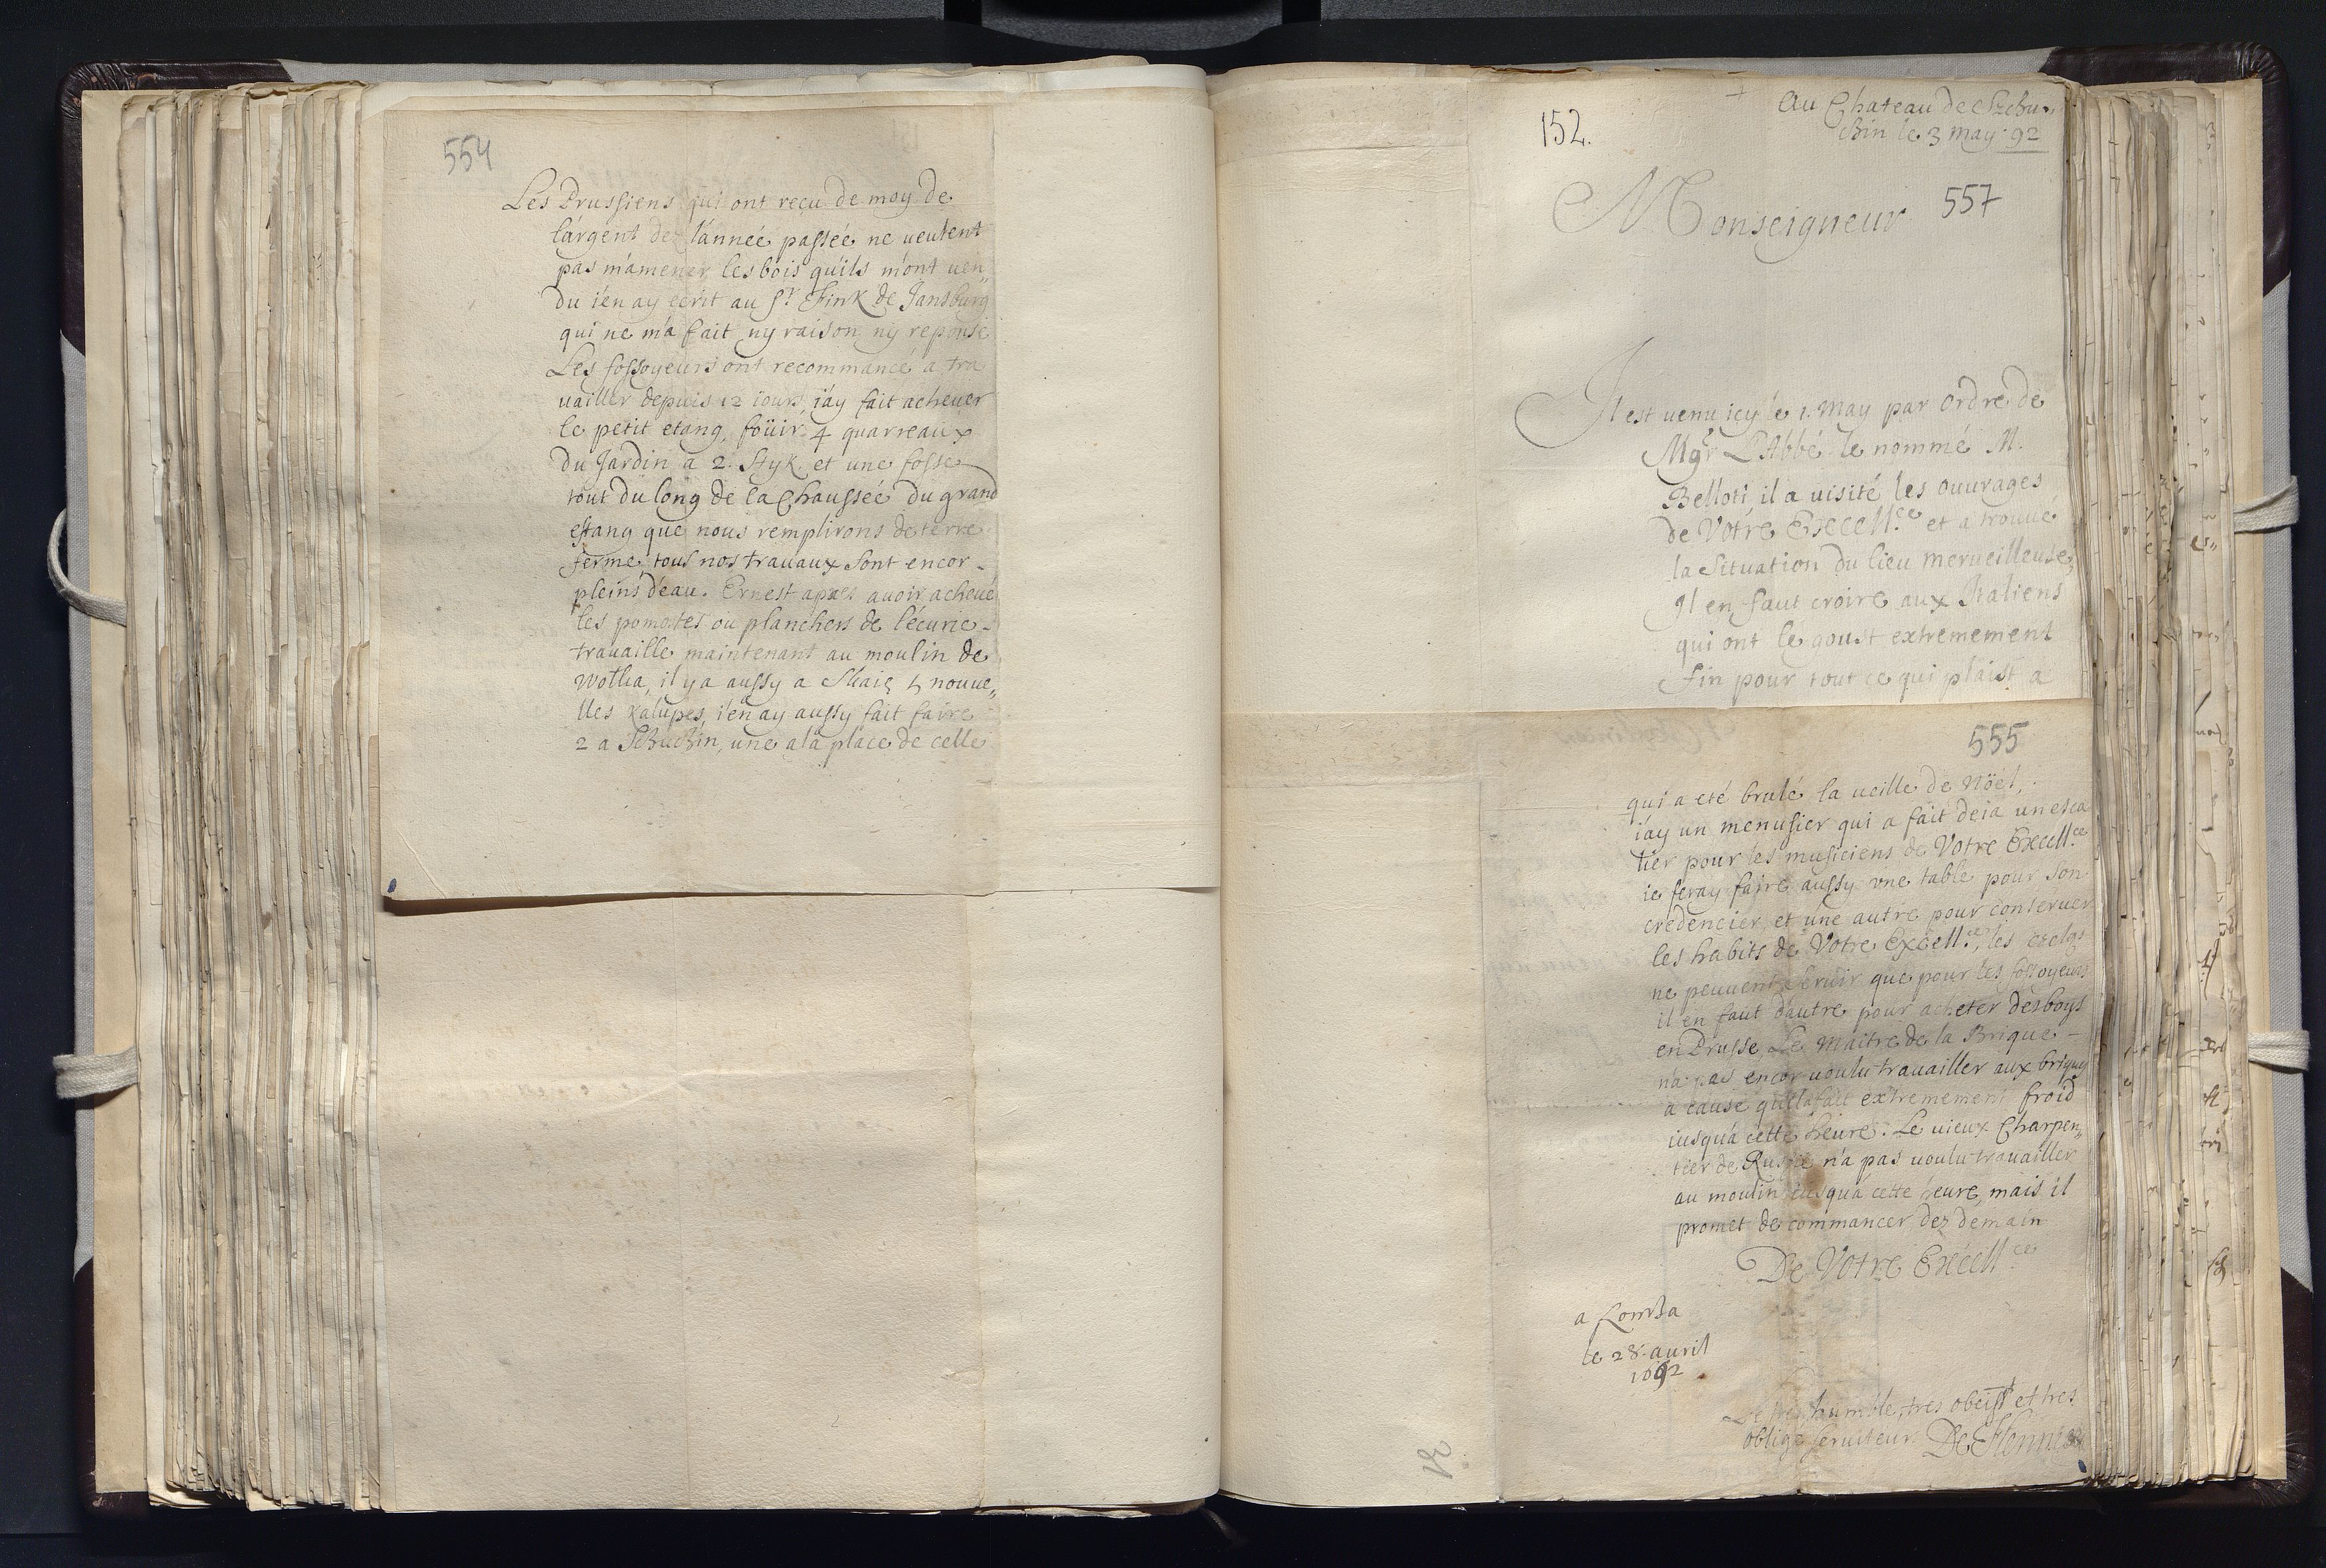 554
Les Prussiens qui ont recu de moy de
l'argent dez l'année passée ne veulent
pas m'amener les bois qu'ils m'ont ven„
du i'en ay ecrit au Sr. Fink de Jansburg
qui ne m'a fait ny raison ny reponse
Les fossoyeurs ont recommancé a tra
uailler depuis 12 iours, i'ay fait acheuer
le petit etang, foüir 4 quarreaux
du Jardin a 2. Styk. et une fosse
tout du long de la Chaussée du grand
estang que nous remplirons de terre
ferme, tous nos trauaux sont encor -
pleins d'eau. Ernest apres auoir acheué
les pomostes ou planchers de l'écurie -
trauaille maintenant au moulin de
il y a aussy a nouue„
lles xalupes, i'en ay aussy fait faire
2 a Schuchin, une a la place de celle
152.
Au Chateau de Szchu„
chin le 3 may 92
Monseigneur
557
Il est uenu icy le 1. May par Ordre de
Mgr L'Abbé le nommé M.
Belloti, il a uisité les ouurages
de Votre Excell.ce et a trouué
la Situation du lieu merueilleuse,
Il en faut croire aux Italiens
qui ont le goust extremement
fin pour tout ce qui plaist a
555
qui a eté brulé la ueille de Nöël,
i'ay un menusier qui a fait deia un esca
lier pour les musiciens de Votre Excell.ce
ie feray faire aussy vne table pour son
credencier, et une autre pour conseruer
les habits de Votre Excell.ce, les
ne peuuent seruir que pour les fossoyeurs
il en faut d'autre pour acheter des boys
en Prusse, Le Maitre de la Brique -
n'a pas encor uoulu trauailler aux briques
a cause qu'il a fait extremement froid
iusqu'a cette heure. Le uieux Charpen„
tier de Russie n'a pas uoulu trauailler
au moulin iusqu'a cette heure, mais il
promet de commancer dez demain
De Votre Excell.ce
a Lomza
le 28. auril
1692
Le tres humble, tres obeisst et tres
obligé seruiteur.